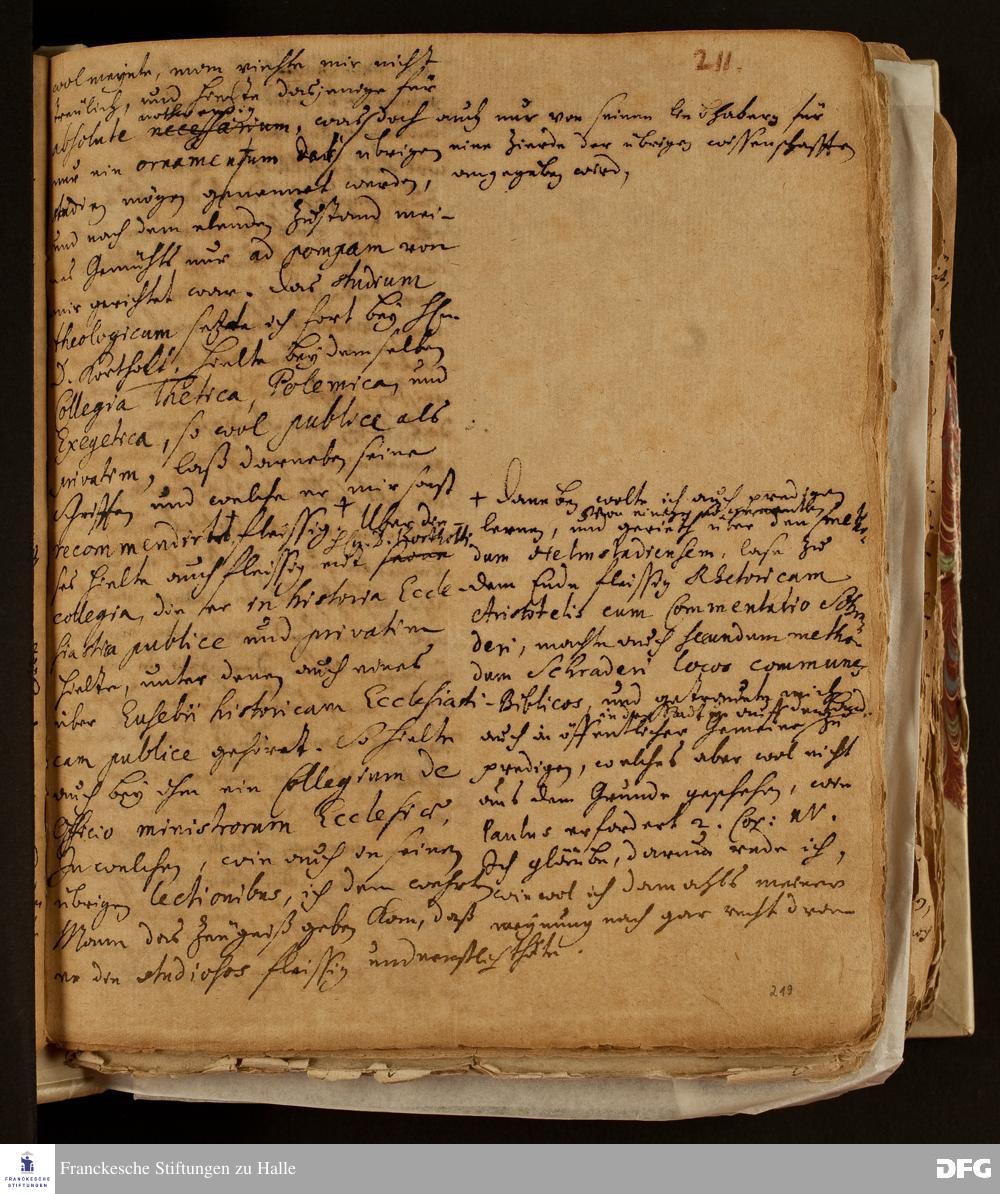 211.
wol meynte, man riethe mir nicht
treulich, und hielte dasjenige für
nothwendig
absolute necessarium, was doch auch nur von seinen liebhabern für
nur ein ornamentum der übrigen eine Zierde der übrigen wissenschafften
studien mögen genennet werden, angegeben wird,
und nach dem elenden Zustand mei-
nes Gemüths nur ad pompam von
mir gerichtet war. Das studium
theologicum setzte ich fort bey Hn.
D. Kortholt, hielte bey demselben
Collegia Thetica, Polemica, und
Exegetica, so wol publice als
privatim, laß darneben seine
Schrifften und welche er mir sonst
recommendirte fleissig. + Uber die-
Hn. D. Kortholti
ses hielte auch fleissig mit seine
collegia, die er in historia Eccle-
siastica publice und privatim
hielte, unter denen auch eines
über Eusebii historicam Ecclesiasti-
cam publice gehöret. So hielte
auch bey ihm ein Collegium de
Officio ministrorum Ecclesiae,
In welchen, wie auch in seinen
übrigen lectionibus, ich dem wehrten
Mann das Zeugniß geben kan, daß
er die studiosos fleissig und ernstlich
+ Daneben wolte ich auch predigen
lernen, und gerieth über den metho-
dum Helmstadiensem, lase zu
dem Ende fleissig Rhetoricam
Aristotelis cum Commentario Schra-
deri, machte auch secundum metho-
dum Schraderi locos communes
Biblicos, und getrauete mich
in der Stadt und auff dem Lande
auch in öffentlicher Gemeine zu
predigen, welches aber wol nicht
aus dem Grunde geschehen, wie
Paulus erfordert 2. Cor: IV.
Ich gläube, darum rede ich,
wiewol ich damahls meiner
meynung nach gar recht dran
thäte.
219
FRANCKESCHE
STIFTUNGEN
Franckesche Stiftungen zu Halle
DFG